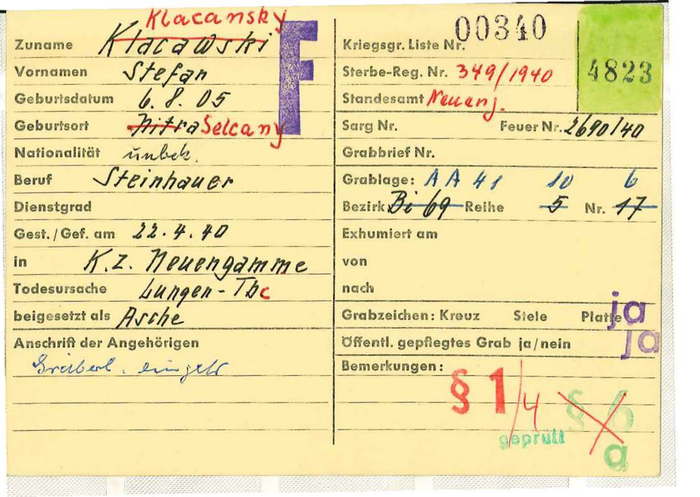 Klacansky
Zuname Klacawski
Vornamen Stefan
Geburtsdatum 6.8.05
Geburtsort Nitra Selcany
Nationalität unbek.
Beruf Steinhauer
Dienstgrad
Gest./Gef. am 22.4.40
in K.z. Neuengamme
Todesursache Lungen-Tbc
beigesetzt als Asche
Anschrift der Angehörigen
F
00340
Kriegsgr. Liste Nr.
4823
Sterbe-Reg. Nr. 349/1940
Standesamt Neueng.
Sarg Nr. Feuer Nr. 2690/40
Grabbrief Nr.
Grablage: AA 41 10 6
Bezirk Bi 69 Reihe 5 Nr. 17
Exhumiert am
von
nach
Grabzeichen: Kreuz Stele Platte ja
Öffentl. gepflegtes Grab ja/nein ja
Bemerkungen:
§ 1/4 § 6
geprüft a